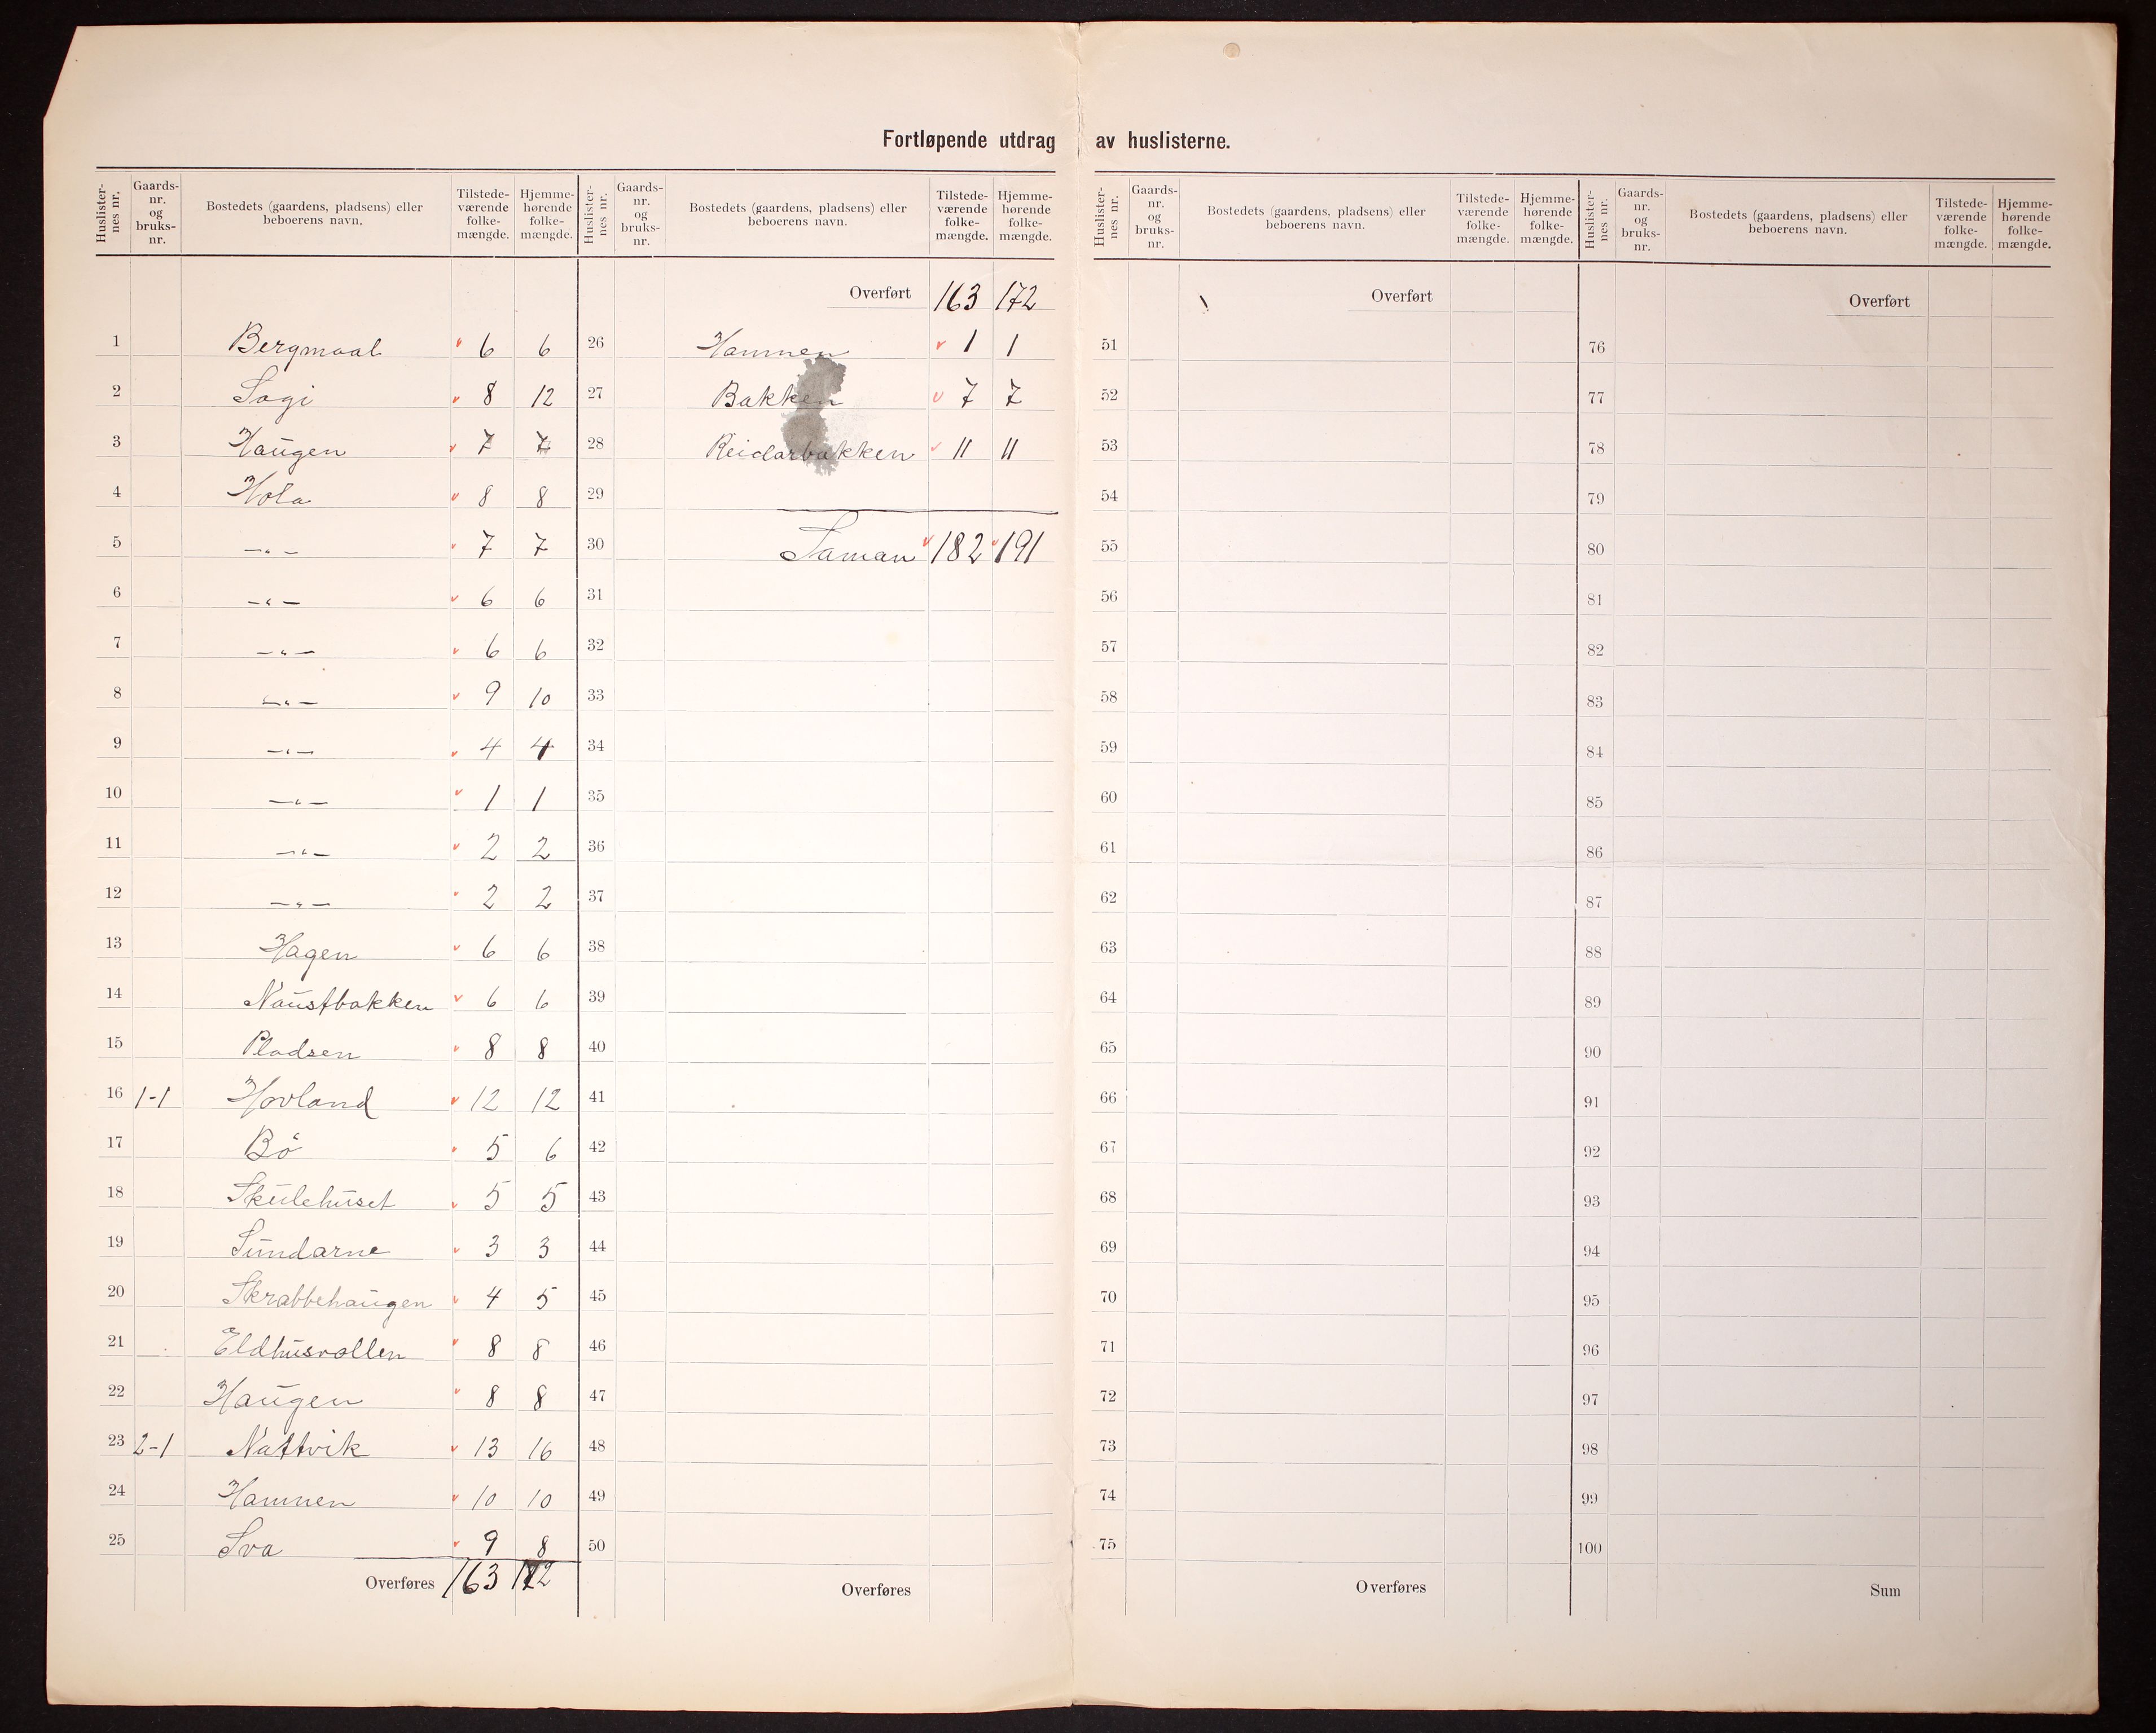 Fortløpende utdrag av huslisterne.
Huslisternes nr. Gaards-nr. og bruks-nr. Bostedets (gaardens, pladsens) eller beboerens navn. Tilstede-værende folke-mængde. Hjemme-hørende folke-mængde.
1 Bergmaal 6 6
2 Sagi 8 12
3 Haugen 7 7
4 Hola 8 8
5 —"— 7 7
6 —"— 6 6
7 —"— 6 6
8 —"— 9 10
9 —"— 4 4
10 —"— 1 1
11 —"— 2 2
12 —"— 2 2
13 Hagen 6 6
14 Naustbakken 6 6
15 Pladsen 8 8
16 1-1 Hovland 12 12
17 Bö 5 6
18 Skulehuset 5 5
19 Sundarne 3 3
20 Skrabbehaugen 4 5
21 Eldhusvollen 8 8
22 Haugen 8 8
23 2-1 Nattvik 13 16
24 Hamnen 10 10
25 Sva 9 8
Overføres 163 172
Huslisternes nr. Gaards-nr. og bruks-nr. Bostedets (gaardens, pladsens) eller beboerens navn. Tilstede-værende folke-mængde. Hjemme-hørende folke-mængde.
Overført 163 172
26 Hamnen 1 1
27 Bakken 7 7
28 Reidarbakken 11 11
29
30 Saman 182 191
31
32
33
34
35
36
37
38
39
40
41
42
43
44
45
46
47
48
49
50
Overføres
Huslisternes nr. Gaards-nr. og bruks-nr. Bostedets (gaardens, pladsens) eller beboerens navn. Tilstede-værende folke-mængde. Hjemme-hørende folke-mængde.
Overført
51
52
53
54
55
56
57
58
59
60
61
62
63
64
65
66
67
68
69
70
71
72
73
74
75
Overføres
Huslisternes nr. Gaards-nr. og bruks-nr. Bostedets (gaardens, pladsens) eller beboerens navn. Tilstede-værende folke-mængde. Hjemme-hørende folke-mængde.
Overført
76
77
78
79
80
81
82
83
84
85
86
87
88
89
90
91
92
93
94
95
96
97
98
99
100
Sum